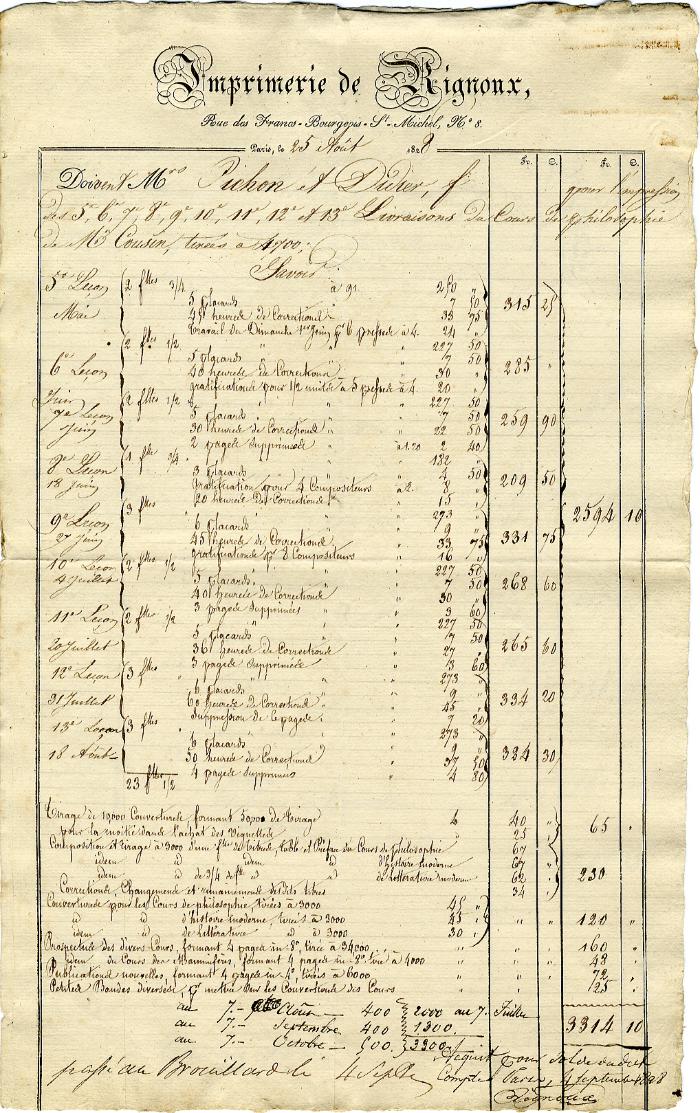 Imprimerie de Rignoux,
Rue des Francs-Bourgeois-St-Michel, No 8.
Paris, le 25 Août 1828
Fr. C. Fr. C.
Doivent Mrs Pichon et Didier, pour l'impression
des 5e, 6e, 7e, 8e, 9e, 10e, 11e, 12e et 13e Livraisons du Cours de philosophie
de Mr Cousin, tirées à 4700.
Savoir
5e Leçon 2 flles 3/4 à 91. 250 "
5 placards " 7 50
Mai 45 heures de Corrections " 33 75 315 25
travail du Dimanche 1er Juin pr 6 presses à 4. 24 "
2 flles 1/2 " " 227 50
5 placards " 7 50
6e Leçon 40 heures de Corrections " 30 " 285 "
gratifications pour 1/2 nuit à 5 presses à 4 20 "
Juin 2 flles 1/2 " " 227 50
7e Leçon 5 placards " 7 50
Juin 30 heures de Corrections " 22 50 259 90
2 pages supprimées à 1.20 2 40
1 flle 3/4 " 182 "
8e Leçon 3 placards " 4 50
18 Juin gratification pour 4 Compositeurs à 2. 8 " 209 50
20 heures de Corrections 15 "
3 flles " 273 " 2594 10
9e Leçon 6 placards " 9 "
27 Juin 45 heures de Corrections " 33 75 331 75
gratifications pr 8 Compositeurs " 16 "
10e Leçon 2 flles 1/2 " 227 50
4 Juillet 5 placards " 7 50
40 heures de Corrections " 30 " 268 60
3 pages supprimées " 3 60
11e Leçon 2 flles 1/2 " 227 50
5 placards " 7 50
20 Juillet 36 heures de Corrections " 27 " 265 60
3 pages supprimées " 3 60
12e Leçon 3 flles " 273 "
6 placards " 9 "
31 Juillet 60 heures de Corrections " 45 " 334 20
suppression de 6 pages " 7 20
13e Leçon 3 flles " 273 "
6 placards " 9 "
18 Août 50 heures de Corrections " 37 50 324 30
4 pages supprimées " 4 80
23 flles 1/2
Tirage de 10,000 Couvertures, formant 50,000 de Tirage 40 "
pour la moitié dans l'achat des Vignettes 25 " 65 "
Composition et tirage à 3000 d'une flle de titres, table et Préface du Cours de philosophie 67 "
idem d idem d d'histoire moderne 67 "
idem d de 3/4 de flle d d de littérature moderne 62 " 230
Corrections, Changemens et remaniemens des dits titres 34 "
Couvertures pour les Cours de philosophie, tirées à 3000 45 "
d d d'histoire moderne, tirées à 3000 45 " 120 "
idem d de littérature d à 3000 30 "
Prospectus des divers Cours, formant 4 pages in-8o, tiré à 34000 " " 160 "
idem du Cours des Mammifères, formant 4 pages in-8o tiré à 4000 " " 48 "
Publications nouvelles, formant 4 pages in-4o, tirées à 6000 " " 72 "
Petites Bandes diverses pr mettre sur les Couvertures des Cours " " 25 "
au 7.- Août 400 2000 au 7. Juillet
au 7.- Septembre 400 1300. 3314 10
au 7.- Octobre 500. 3300
Acquit pour solde du dit
passé au Brouillard le 4 Septbre Compte Paris, 4 septembre 1828
Rignoux